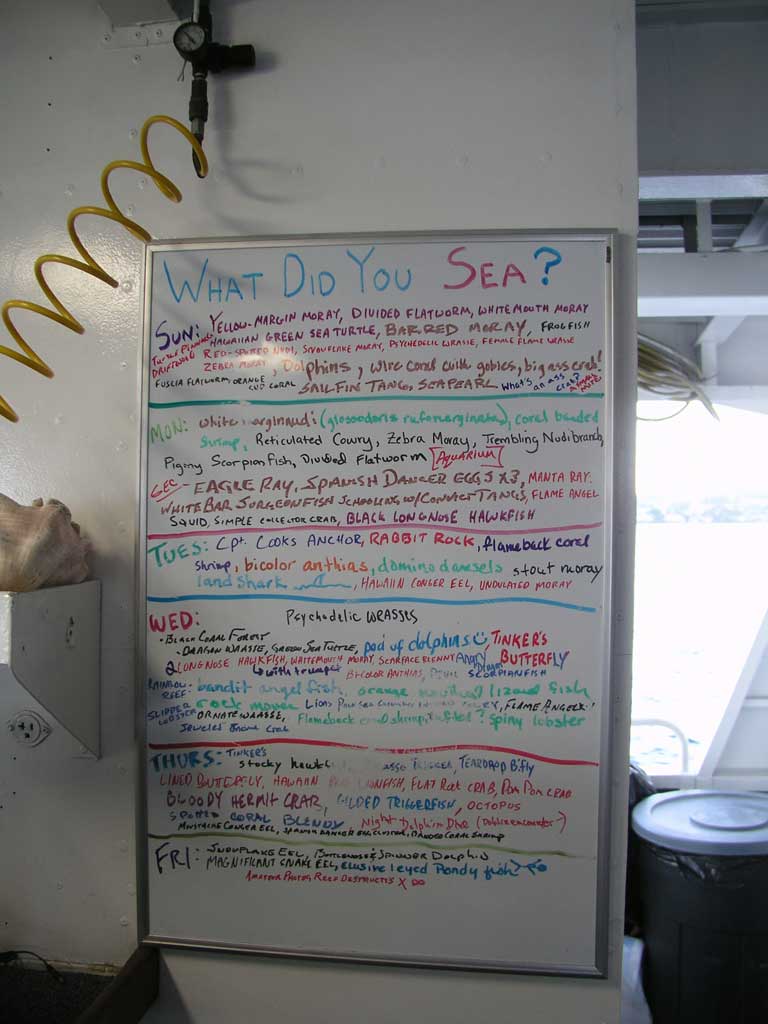 WHAT DID YOU SEA?
SUN: YELLOW-MARGIN MORAY, DIVIDED FLATWORM, WHITEMOUTH MORAY
HAWAIIAN GREEN SEA TURTLE, BARRED MORAY, FROGFISH
RED-SPOTTED NUDI, SNOWFLAKE MORAY, PSYCHEDELIC WRASSE, FEMALE FLAME WRASSE
DRIFTWOOD ZEBRA MORAY, Dolphins, wire coral with gobies, big ass crab!
FUSCIA FLATWORM, ORANGE CUP CORAL SAILFIN TANG, SEA PEARL What's an ass crab?
MON: white marginnudi (glossodoris rufomarginata), coral banded
shrimp, Reticulated Cowry, Zebra Moray, Trembling Nudibranch,
Pigmy Scorpion Fish, Divided Flatworm AQUARIUM
GEC - EAGLE RAY, SPANISH DANCER EGGS X3, MANTA RAY.
WHITE BAR SURGEONFISH SCHOOLING W/CONVICT TANGS, FLAME ANGEL
SQUID, SIMPLE COLLECTOR CRAB, BLACK LONGNOSE HAWKFISH
TUES: CPT. COOKS ANCHOR, RABBIT ROCK, flameback coral
shrimp, bicolor anthias, domino damsels stout moray
land shark, HAWAIIN CONGER EEL, UNDULATED MORAY
WED: Psychadelic WRASSES
• BLACK CORAL FOREST
- DRAGON WRASSE, GREEN SEA TURTLE, pod of dolphins TINKER'S
2 LONGNOSE HAWKFISH, WHITEMOUTH MORAY, SCARFACE BLENNY BUTTERFLY
with trumpet BI-COLOR ANTHIAS, DEVIL SCORPIANFISH
RAINBOW REEF: bandit angel fish, orange lizard fish
SLIPPER LOBSTER rock mover FLAME ANGEL
ORNATE WRASSE, Flameback coral shrimp, ? spiny lobster
Jeweled Anone Crab
THURS: TINKER'S
stocky hawk TRIGGER, TEARDROP B'fly
LINED BUTTERFLY, HAWAIIN LIONFISH, FLAT ROCK CRAB, Pom Pom CRAB
BLOODY HERMIT CRAB, GILDED TRIGGERFISH, OCTOPUS
SPOTTED CORAL BLENDY, Night Dolphin Dive
MUSTACHE CONGER EEL, SPANISH DANCER EGG CLUSTER, BANDED CORAL SHRIMP
FRI: SNOWFLAKE EEL, BOTTLENOSE & SPINNER DOLPHIN
MAGNIFICANT SNAKE EEL, elusive 1 eyed Bondy fish
AMATEUR PHOTOG REEF DESTRUCTIS X